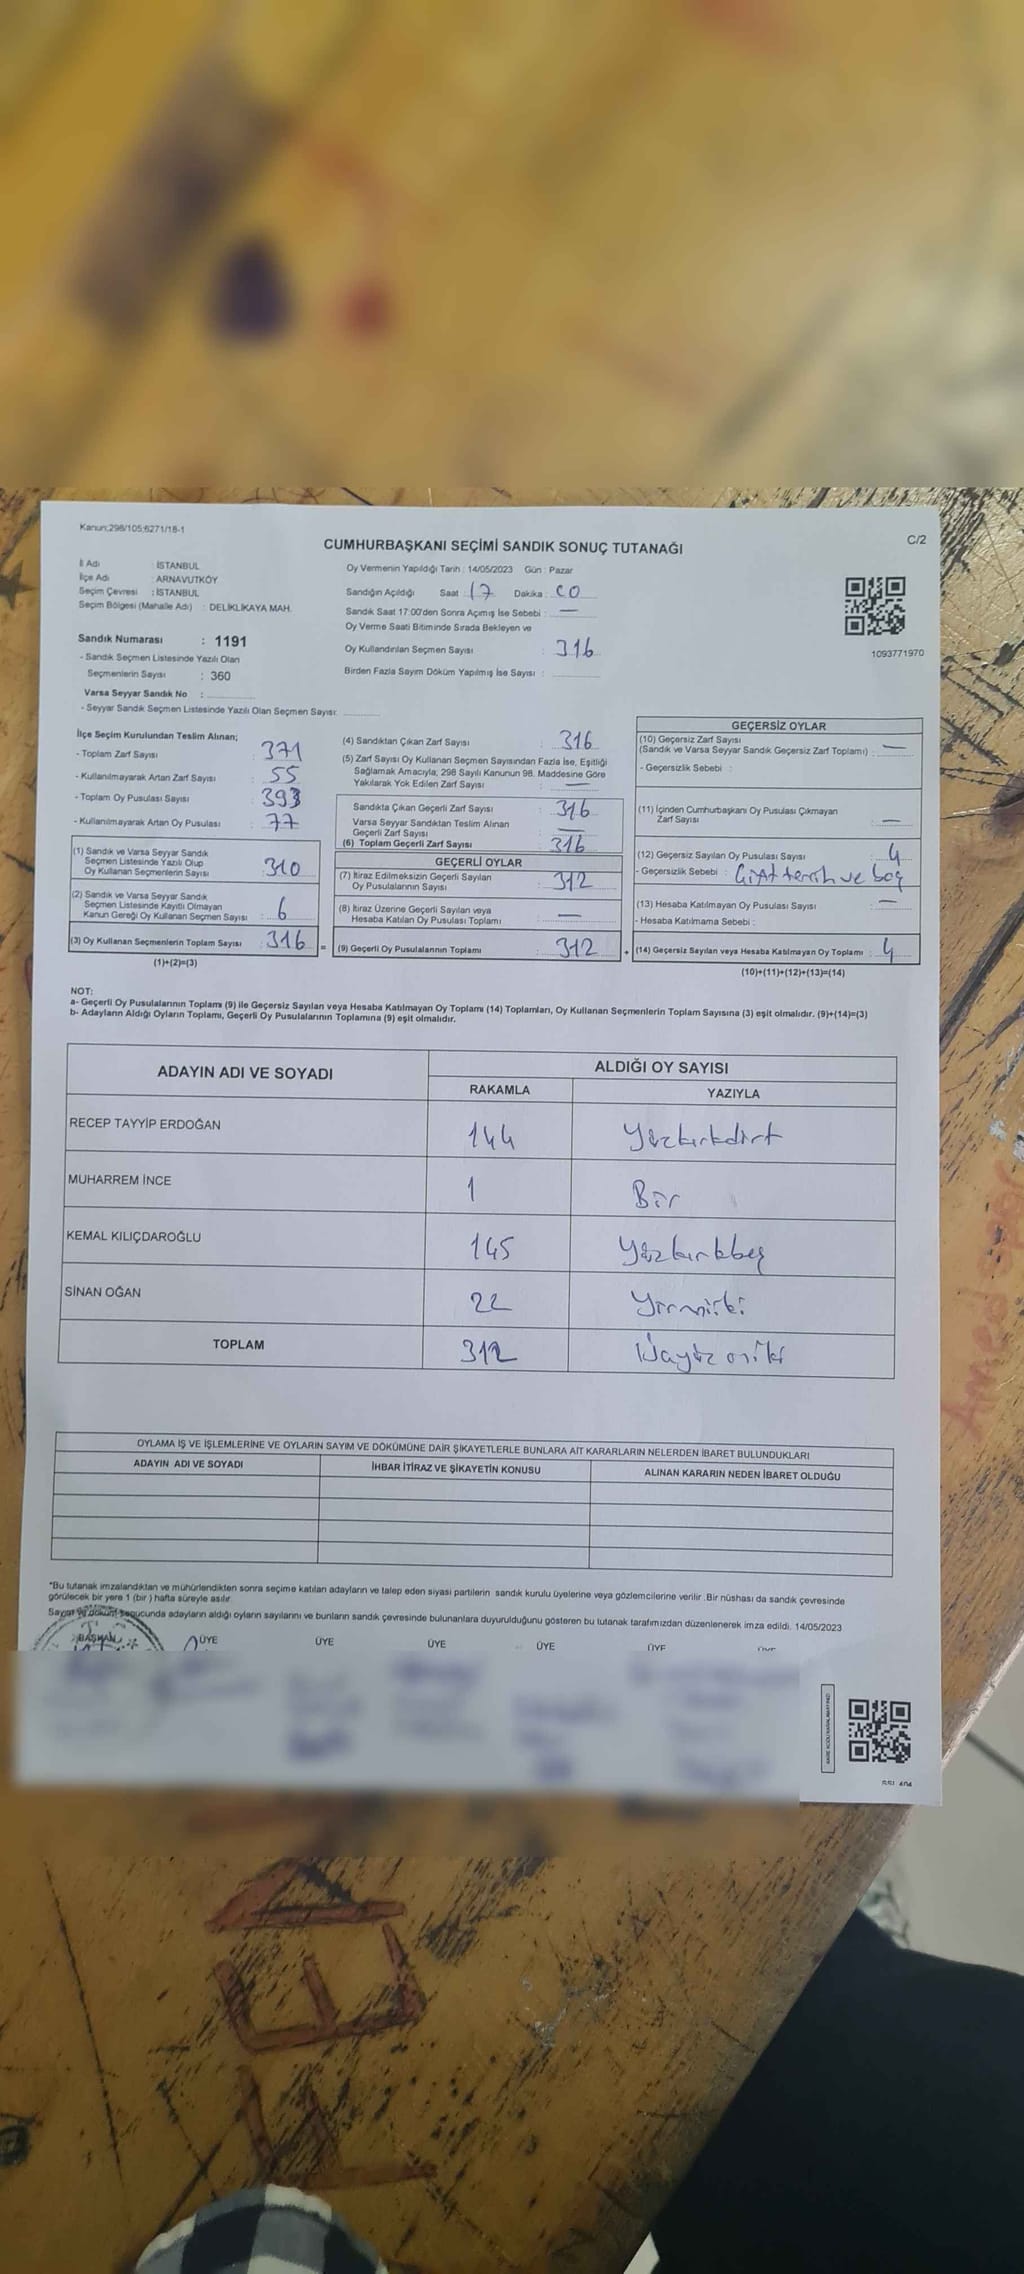 Kanun:298/105;6271/18-1
C/2
CUMHURBAŞKANI SEÇİMİ SANDIK SONUÇ TUTANAĞI
İl Adı : İSTANBUL
İlçe Adı : ARNAVUTKÖY
Seçim Çevresi : İSTANBUL
Seçim Bölgesi (Mahalle Adı) : DELİKLİKAYA MAH.
Sandık Numarası : 1191
- Sandık Seçmen Listesinde Yazılı Olan
Seçmenlerin Sayısı : 360
Varsa Seyyar Sandık No :
- Seyyar Sandık Seçmen Listesinde Yazılı Olan Seçmen Sayısı:
Oy Vermenin Yapıldığı Tarih : 14/05/2023 Gün : Pazar
Sandığın Açıldığı Saat : 17 Dakika : 00
Sandık Saat 17:00'den Sonra Açımış İse Sebebi : —
Oy Verme Saati Bitiminde Sırada Bekleyen ve
Oy Kullandırılan Seçmen Sayısı : 316
Birden Fazla Sayım Döküm Yapılmış İse Sayısı :
1093771970
İlçe Seçim Kurulundan Teslim Alınan;
- Toplam Zarf Sayısı : 371
- Kullanılmayarak Artan Zarf Sayısı : 55
- Toplam Oy Pusulası Sayısı : 393
- Kullanılmayarak Artan Oy Pusulası : 77
(1) Sandık ve Varsa Seyyar Sandık
Seçmen Listesinde Yazılı Olup
Oy Kullanan Seçmenlerin Sayısı : 310
(2) Sandık ve Varsa Seyyar Sandık
Seçmen Listesinde Kayıtlı Olmayan
Kanun Gereği Oy Kullanan Seçmen Sayısı : 6
(3) Oy Kullanan Seçmenlerin Toplam Sayısı : 316 =
(1)+(2)=(3)
(4) Sandıktan Çıkan Zarf Sayısı : 316
(5) Zarf Sayısı Oy Kullanan Seçmen Sayısından Fazla İse, Eşitliği
Sağlamak Amacıyla, 298 Sayılı Kanunun 98. Maddesine Göre
Yakılarak Yok Edilen Zarf Sayısı : —
Sandıkta Çıkan Geçerli Zarf Sayısı : 316
Varsa Seyyar Sandıktan Teslim Alınan
Geçerli Zarf Sayısı : —
(6) Toplam Geçerli Zarf Sayısı : 316
GEÇERLİ OYLAR
(7) İtiraz Edilmeksizin Geçerli Sayılan
Oy Pusulalarının Sayısı : 312
(8) İtiraz Üzerine Geçerli Sayılan veya
Hesaba Katılan Oy Pusulası Toplamı : —
(9) Geçerli Oy Pusulalarının Toplamı : 312 +
GEÇERSİZ OYLAR
(10) Geçersiz Zarf Sayısı
(Sandık ve Varsa Seyyar Sandık Geçersiz Zarf Toplamı) : —
- Geçersizlik Sebebi :
(11) İçinden Cumhurbaşkanı Oy Pusulası Çıkmayan
Zarf Sayısı : —
(12) Geçersiz Sayılan Oy Pusulası Sayısı : 4
- Geçersizlik Sebebi : Çift tercih ve boş
(13) Hesaba Katılmayan Oy Pusulası Sayısı : —
- Hesaba Katılmama Sebebi :
(14) Geçersiz Sayılan veya Hesaba Katılmayan Oy Toplamı : 4
(10)+(11)+(12)+(13)=(14)
NOT:
a- Geçerli Oy Pusulalarının Toplamı (9) ile Geçersiz Sayılan veya Hesaba Katılmayan Oy Toplamı (14) Toplamları, Oy Kullanan Seçmenlerin Toplam Sayısına (3) eşit olmalıdır. (9)+(14)=(3)
b- Adayların Aldığı Oyların Toplamı, Geçerli Oy Pusulalarının Toplamına (9) eşit olmalıdır.
ADAYIN ADI VE SOYADI ALDIĞI OY SAYISI
RAKAMLA YAZIYLA
RECEP TAYYİP ERDOĞAN 144 Yüzkırkdört
MUHARREM İNCE 1 Bir
KEMAL KILIÇDAROĞLU 145 Yüzkırkbeş
SİNAN OĞAN 22 Yirmiiki
TOPLAM 312 Üçyüz oniki
OYLAMA İŞ VE İŞLEMLERİNE VE OYLARIN SAYIM VE DÖKÜMÜNE DAİR ŞİKAYETLERLE BUNLARA AİT KARARLARIN NELERDEN İBARET BULUNDUKLARI
ADAYIN ADI VE SOYADI İHBAR İTİRAZ VE ŞİKAYETİN KONUSU ALINAN KARARIN NEDEN İBARET OLDUĞU
*Bu tutanak imzalandıktan ve mühürlendikten sonra seçime katılan adayların ve talep eden siyasi partilerin sandık kurulu üyelerine veya gözlemcilerine verilir. Bir nüshası da sandık çevresinde
görülecek bir yere 1 (bir) hafta süreyle asılır.
Sayım ve döküm sonucunda adayların aldığı oyların sayılarını ve bunların sandık çevresinde bulunanlara duyurulduğunu gösteren bu tutanak tarafımızdan düzenlenerek imza edildi. 14/05/2023
BAŞKAN ÜYE ÜYE ÜYE ÜYE ÜYE ÜYE
Amed